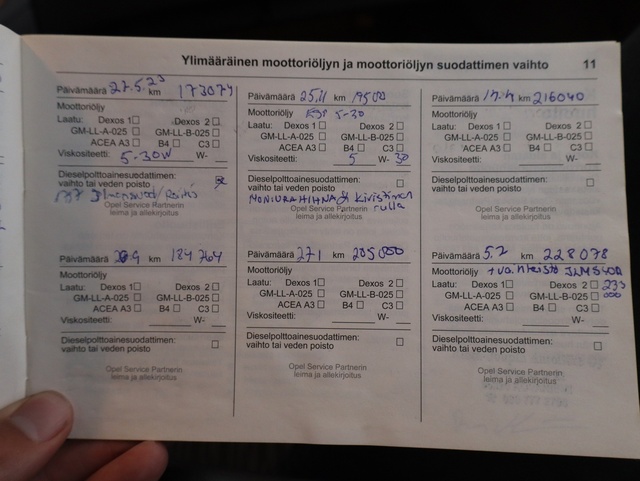 Ylimääräinen moottoriöljyn ja moottoriöljyn suodattimen vaihto 11
Päivämäärä 27.5.23 km 173074
Moottoriöljy
Laatu: Dexos 1 ☐ Dexos 2 ☐
GM-LL-A-025 ☐ GM-LL-B-025 ☐
ACEA A3 ☐ B4 ☐ C3 ☐
Viskositeetti: 5-30W W-
Dieselpolttoainesuodattimen:
vaihto tai veden poisto
Opel Service Partnerin
leima ja allekirjoitus
Päivämäärä 25.11 km
Moottoriöljy 5-30
Laatu: Dexos 1 ☐ Dexos 2 ☐
GM-LL-A-025 ☐ GM-LL-B-025 ☐
ACEA A3 ☐ B4 ☐ C3 ☐
Viskositeetti: 5 W- 30
Dieselpolttoainesuodattimen:
vaihto tai veden poisto ☐
MONIURAHIHNA & Kiristimen
rulla
Opel Service Partnerin
leima ja allekirjoitus
Päivämäärä km 216040
Moottoriöljy
Laatu: Dexos 1 ☐ Dexos 2 ☐
GM-LL-A-025 ☐ GM-LL-B-025 ☐
ACEA A3 ☐ B4 ☐ C3 ☐
Viskositeetti: W-
Dieselpolttoainesuodattimen:
vaihto tai veden poisto ☐
Opel Service Partnerin
leima ja allekirjoitus
Päivämäärä km 184764
Moottoriöljy
Laatu: Dexos 1 ☐ Dexos 2 ☐
GM-LL-A-025 ☐ GM-LL-B-025 ☐
ACEA A3 ☐ B4 ☐ C3 ☐
Viskositeetti: W-
Dieselpolttoainesuodattimen:
vaihto tai veden poisto ☐
Opel Service Partnerin
leima ja allekirjoitus
Päivämäärä 27.1 km 205000
Moottoriöljy
Laatu: Dexos 1 ☐ Dexos 2 ☐
GM-LL-A-025 ☐ GM-LL-B-025 ☐
ACEA A3 ☐ B4 ☐ C3 ☐
Viskositeetti: W-
Dieselpolttoainesuodattimen:
vaihto tai veden poisto ☐
Opel Service Partnerin
leima ja allekirjoitus
Päivämäärä 5.2 km 228078
Moottoriöljy
Laatu: Dexos 1 ☐ Dexos 2 ☐ 233
GM-LL-A-025 ☐ GM-LL-B-025 ☐ 000
ACEA A3 ☐ B4 ☐ C3 ☐
Viskositeetti: W-
Dieselpolttoainesuodattimen:
vaihto tai veden poisto ☐
Opel Service Partnerin
leima ja allekirjoitus